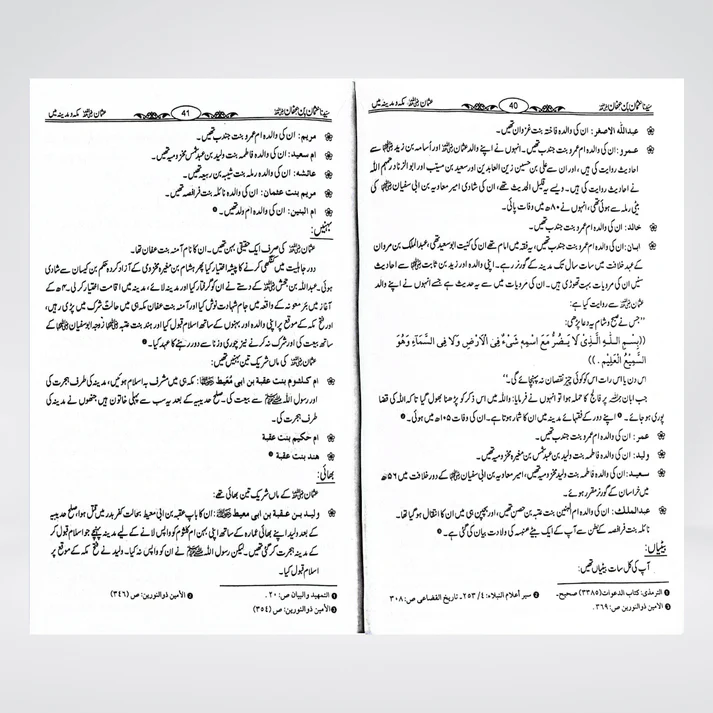 سیّدنا عثمان بن عفان رضی اللہ عنہ 40 عثمان رضی اللہ عنہ مکہ و مدینہ میں
عبداللہ الاصغر: ان کی والدہ فاختہ بنت غزوان تھیں۔
عمرو: ان کی والدہ ام عمرو بنت جندب تھیں۔ انہوں نے اپنے والد عثمان رضی اللہ عنہ اور اُسامہ بن زید رضی اللہ عنہ سے
احادیث روایت کی ہیں، اور ان سے علی بن حسین زین العابدین اور سعید بن مسیّب اور ابوالزناد رحمہم اللہ
نے احادیث روایت کی ہیں۔ ویسے یہ قلیل الحدیث تھے، ان کی شادی امیر معاویہ بن ابی سفیان رضی اللہ عنہ کی
بیٹی رملہ سے ہوئی تھی، انہوں نے ۸۰ھ میں وفات پائی۔
خالد: ان کی والدہ ام عمرو بنت جندب تھیں۔
ابان: ان کی والدہ ام عمرو بنت جندب تھیں، یہ فقہ میں امام تھے ان کی کنیت ابوسعید تھی، عبدالملک بن مروان
کے عہد خلافت میں سات سال تک مدینہ کے گورنر رہے۔ اپنی والدہ اور زید بن ثابت رضی اللہ عنہ سے احادیث
سنیں ان کی مرویات بہت تھوڑی ہیں۔ ان کی مرویات میں سے یہ حدیث ہے جسے انہوں نے اپنے والد
عثمان رضی اللہ عنہ سے روایت کیا ہے:
’’جس نے صبح و شام یہ دعا پڑھی:
((بِسْمِ اللّٰهِ الَّذِیْ لَا یَضُرُّ مَعَ اسْمِهٖ شَیْءٌ فِی الْاَرْضِ وَلَا فِی السَّمَآءِ وَهُوَ
السَّمِیْعُ الْعَلِیْمُ۔))
اس دن یا اس رات اس کو کوئی چیز نقصان نہ پہنچائے گی۔‘‘
جب ابان رحمہ اللہ پر فالج کا حملہ ہوا تو انہوں نے فرمایا: واللہ میں اس ذکر کو پڑھنا بھول گیا تا کہ اللہ کی قضا
پوری ہو جائے۔ ❶ اپنے دور کے فقہائے مدینہ میں ان کا شمار ہوتا ہے۔ ان کی وفات ۱۰۵ھ میں ہوئی۔ ❷
عمر: ان کی والدہ ام عمرو بنت جندب تھیں۔
ولید: ان کی والدہ فاطمہ بنت ولید بن عبدشمس بن مغیرہ مخزومیہ تھیں۔
سعید: ان کی والدہ فاطمہ بنت ولید مخزومیہ تھیں، امیر معاویہ بن ابی سفیان رضی اللہ عنہ کے دور خلافت میں ۵۶ھ
میں خراسان کے گورنر مقرر ہوئے۔
عبدالملک: ان کی والدہ ام البنین بنت عتبہ بن حصن تھیں، اور بچپن ہی میں ان کا انتقال ہو گیا تھا۔
نائلہ بنت فرافصہ کے بطن سے آپ کے ایک بیٹے عنبسہ کی ولادت بیان کی گئی ہے۔ ❸
بیٹیاں:
آپ کی کل سات بیٹیاں تھیں:
❶ الترمذی: کتاب الدعوات (۳۳۸۵) صحیح۔ ❷ سیر أعلام النبلاء: ۴/ ۲۵۳۔ تاریخ القضاعی ص: ۳۰۸
❸ الامین ذوالنورین ص: ۳۶۹۔
سیّدنا عثمان بن عفان رضی اللہ عنہ 41 عثمان رضی اللہ عنہ مکہ و مدینہ میں
مریم: ان کی والدہ ام عمرو بنت جندب تھیں۔
ام سعید: ان کی والدہ فاطمہ بنت ولید بن عبدشمس مخزومیہ تھیں۔
عائشہ: ان کی والدہ رملہ بنت شیبہ بن ربیعہ تھیں۔
مریم بنت عثمان: ان کی والدہ نائلہ بنت فرافصہ تھیں۔
ام البنین: ان کی والدہ ام ولد تھیں۔ ❶
بہنیں:
عثمان رضی اللہ عنہ کی صرف ایک حقیقی بہن تھیں۔ ان کا نام آمنہ بنت عفان تھا۔
دور جاہلیت میں کنگھی کرنے کا پیشہ اختیار کیا پھر ہشام بن مغیرہ مخزومی کے آزاد کردہ حکم بن کیسان سے شادی
ہوئی۔ عبداللہ بن جحش رضی اللہ عنہ کے دستے نے ان کو گرفتار کیا اور مدینہ لائے، مدینہ میں اقامت اختیار کر لی۔ ۴ھ کے
آغاز میں بئر معونہ کے واقعہ میں جام شہادت نوش کیا اور آمنہ بنت عفان مکہ ہی میں حالت شرک میں پڑی رہیں،
اور فتح مکہ کے موقع پر اپنی والدہ اور بہنوں کے ساتھ اسلام قبول کیا اور ہند بنت عتبہ رضی اللہ عنہا زوجہ ابوسفیان رضی اللہ عنہ کے
ساتھ بیعت کی اور شرک نہ کرنے نیز چوری و زنا سے دور رہنے کا عہد کیا۔ ❷
عثمان رضی اللہ عنہ کی ماں شریک تین بہنیں تھیں:
ام کلثوم بنت عقبۃ بن ابی مُعَیط رضی اللہ عنہا: مکہ ہی میں مشرف بہ اسلام ہوئیں، مدینہ کی طرف ہجرت کی
اور رسول اللہ ﷺ سے بیعت کی۔ صلح حدیبیہ کے بعد یہ سب سے پہلی خاتون ہیں جنھوں نے مدینہ کی
طرف ہجرت کی۔
ام حکیم بنت عقبۃ
ھند بنت عقبۃ ❸
بھائی:
عثمان رضی اللہ عنہ کے ماں شریک تین بھائی تھے:
ولید بن عقبۃ بن ابی معیط رضی اللہ عنہ: ان کا باپ عقبہ بن ابی معیط بحالت کفر بدر میں قتل ہوا، صلح حدیبیہ
کے بعد ولید اپنے بھائی عمارہ کے ساتھ اپنی بہن ام کلثوم کو واپس لانے کے لیے مدینہ پہنچے جو اسلام قبول کر
کے مدینہ ہجرت کر گئی تھیں۔ لیکن رسول اللہ ﷺ نے ان کو واپس نہ کیا۔ ولید نے فتح مکہ کے موقع پر
اسلام قبول کیا۔
❶ التمہید والبیان ص: ۲۰۔ ❷ الأمین ذوالنورین: ص (۳۴۶)
❸ الأمین ذوالنورین: ص (۳۵۴)